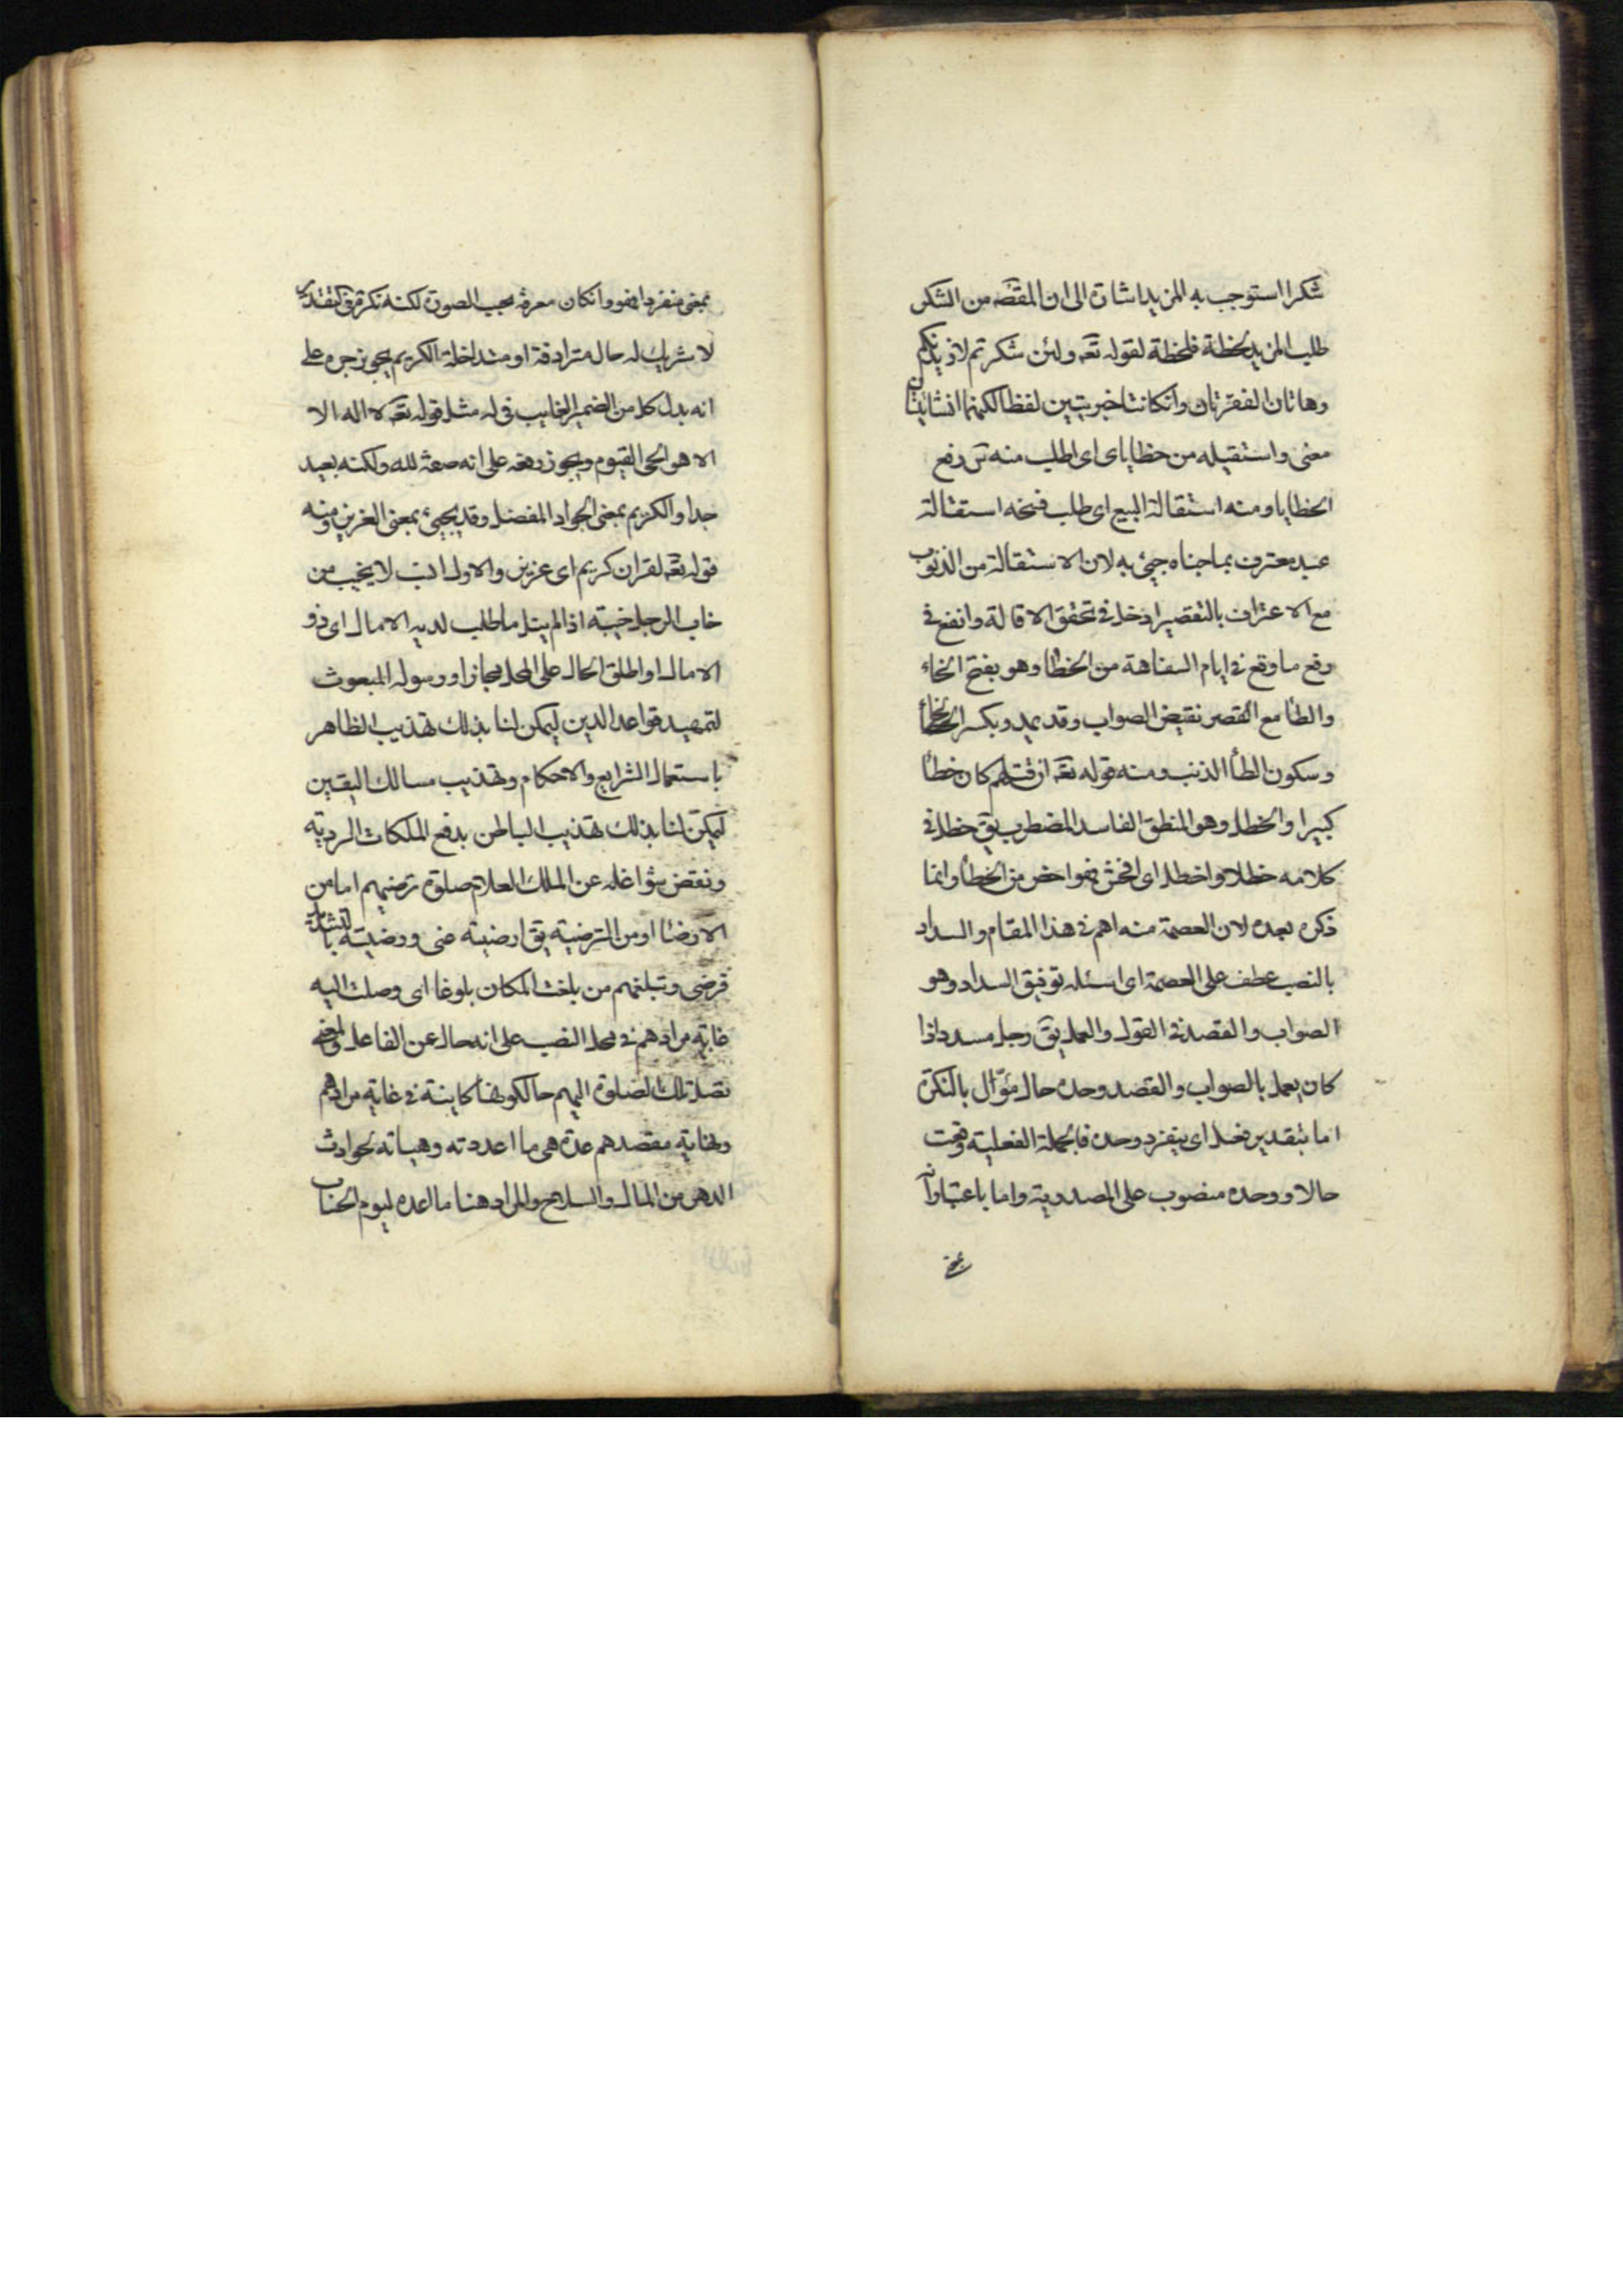 شكرا استوجب به المزيد اشارة الى ان المقصد من الشكر
طلب المزيد لحظة فلحظة لقوله تعه ولئن شكرتم لازيدنكم
وهاتان الفقرتان وانكانتا خبريتين لفظا لكنهما انشائيتان
معنى واستقيله من خطاياى اى اطلب منه تى رفع
الخطايا ومنه استقالة البيع اى طلب فسخه استقالة
عبد معترف بما جناه جيئ به لان الاستقالة من الذنوب
مع الاعتراف بالتقصير ادخل فى تحقق الاقالة وانفع فى
رفع ما وقع فى ايام السفاهة من الخطا وهو بفتح الخاء
والطا مع القصر نقيض الصواب وقد يمد وبكسر الخاء
وسكون الطأ الذنب ومنه قوله تعه ان قتلهم كان خطا
كبيرا والخطل وهو المنطق الفاسد المضطرب يق خطل فى
كلامه خطلا واخطل اى افحش فهو اخص من الخطأ وانما
ذكره بعده لان العصمة منه اهم فى هذا المقام والسداد
بالنصب عطف على العصمة اى اسئله توفيق السداد وهو
الصواب والقصد فى القول والعمل يق رجل مسدد اذا
كان يعمل بالصواب والقصد وحده حال مؤّل بالنكرة
اما بتقدير فعل اى ينفرد وحده فالجملة الفعلية وقعت
حالا ووحده منصوب على المصدرية واما باعتبار انه
بمعنى
بمعنى منفردا فهو وانكان معرفة بحسب الصورة لكنه نكرة فى التقدير
لا شريك له حال مترادفة او متداخلة الكريم يجوز جره على
انه بدل كل من الضمير الغايب فى له مثل قوله تعه لا اله الا
الا هو الحى القيوم ويجوز رفعه على انه صفة لله ولكنه بعيد
جدا والكريم بمعنى الجواد المفضل وقد يجيئ بمعنى العزيز ومنه
قوله تعه لقران كريم اى عزيز والاول انسب لا يخيب من
خاب الرجل خيبة اذا لم ينل ما طلب لديه الامال اى ذو
الامال او اطلق الحال على المحل مجازا ورسوله المبعوث
لتمهيد قواعد الدين ليمكن لنا بذلك تهذيب الظاهر
باستعمال الشرايع والاحكام وتهذيب مسالك اليقين
ليمكن لنا بذلك تهذيب الباطن بدفع الملكات الردية
ونقض شواغله عن الملك العلام صلوة ترضيهم اما من
الارضا او من الترضية يق ارضيته عنى ورضيته بالتشديد
فرضى وتبلغهم من بلغت المكان بلوغا اى وصلت اليه
غاية مرادهم فى محل النصب على انه حال عن الفاعل والمعنى
تصل تلك الصلوة اليهم حالكونها كاينة فى غاية مرادهم
ونهاية مقصدهم عدة هى ما اعددته وهياته لحوادث
الدهر من المال والسلاح والمراد هنا ما اعده ليوم الحساب